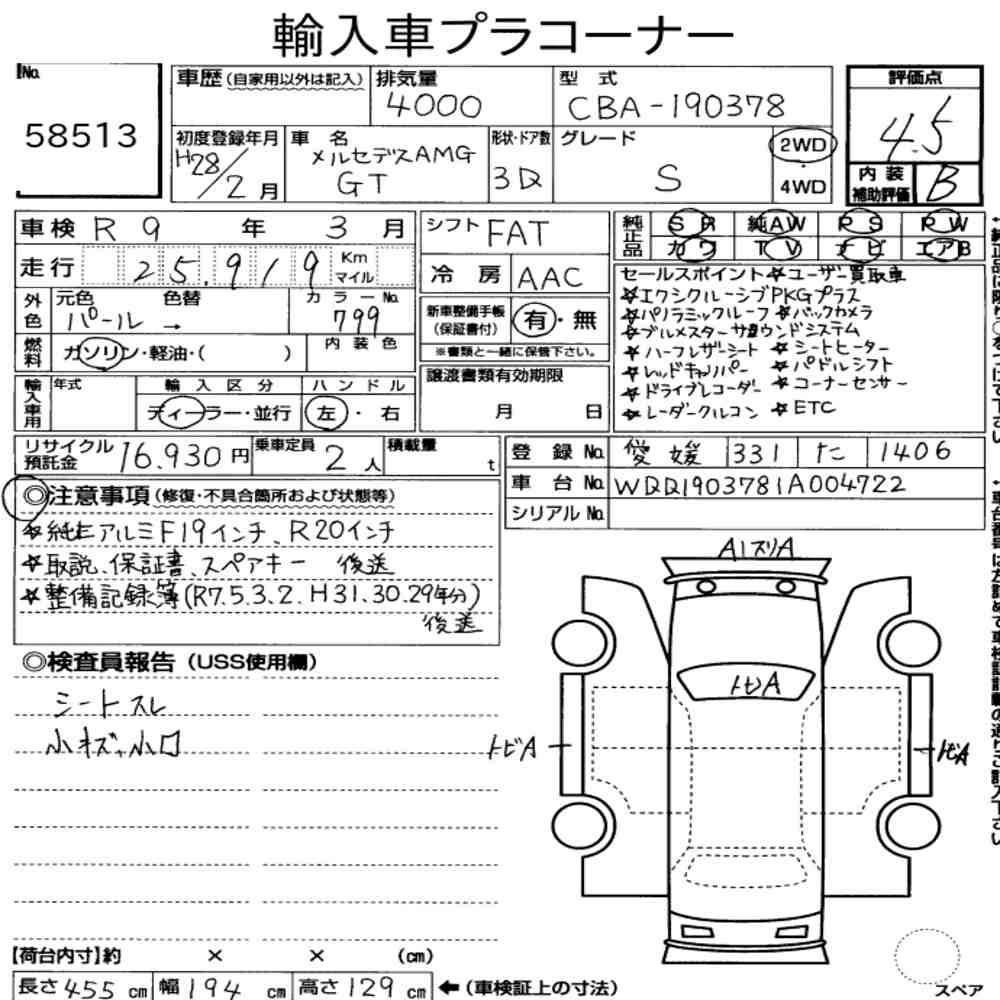 輸入車プラコーナー
No.
58513
車歴(自家用以外は記入)
排気量
4000
型式
CBA-190378
評価点
4.5
初度登録年月
H28/2月
車名
メルセデスAMG
GT
形状・ドア数
3D
グレード
S
2WD
・
4WD
内装
補助評価
B
車検 R 9 年 3 月
走行 25,919 Km
マイル
外色
元色 色替
パール →
カラーNo.
799
燃料
ガソリン・軽油・( )
内装色
輸入車用
年式
輸入区分
ディーラー・並行
ハンドル
左・右
シフト FAT
冷房 AAC
新車整備手帳
(保証書付)
有・無
※書類と一緒に保管下さい。
譲渡書類有効期限
月 日
純正品
SR 純AW PS PW
カワ TV ナビ エアB
セールスポイント ☆ユーザー買取車
☆エクシクルーシブPKGプラス
☆パノラミックルーフ ☆バックカメラ
☆ブルメスターサラウンドシステム
☆ハーフレザーシート ☆シートヒーター
☆レッドキャリパー ☆パドルシフト
☆ドライブレコーダー ☆コーナーセンサー
☆レーダークルコン ☆ETC
リサイクル
預託金
16.930円
乗車定員
2人
積載量
t
登録No. 愛媛 331 た 1406
車台No. WDD1903781A004722
シリアルNo.
◎注意事項(修復・不具合箇所および状態等)
☆純正アルミF19インチ、R20インチ
☆取説、保証書、スペアキー 後送
☆整備記録簿(R7.5.3.2.H31.30.29年分)
後送
◎検査員報告(USS使用欄)
シートスレ
小キズ,小凹
A1スリA
トビA
トビA
トビA
【荷台内寸】約 × × (cm)
長さ455cm 幅194cm 高さ129cm ←(車検証上の寸法)
スペア